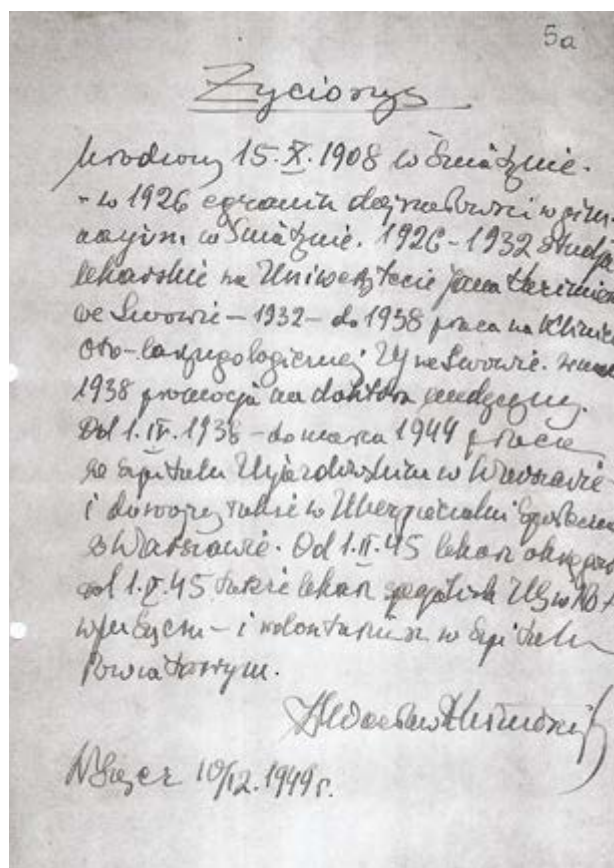 5a
Życiorys
Urodzony 15.X.1908 w Śniatynie.
- w 1926 egzamin dojrzałości w gim-
nazjum w Śniatynie. 1926-1932 studja
lekarskie na Uniwersytecie Jana Kazimierza
we Lwowie - 1932 - do 1938 praca na Klinice
Oto-laryngologicznej UJ we Lwowie.
1938 promocja na doktora medycyny.
Od 1.IV.1938 - do marca 1944 praca
w Szpitalu Ujazdowskim w Warszawie
i także w Ubezpieczalni Społecznej
w Warszawie. Od 1.II.45 lekarz
od 1.V.45 także lekarz
i wolontariusz w Szpitalu
Powiatowym.
N Sącz 10/12.1949 r.